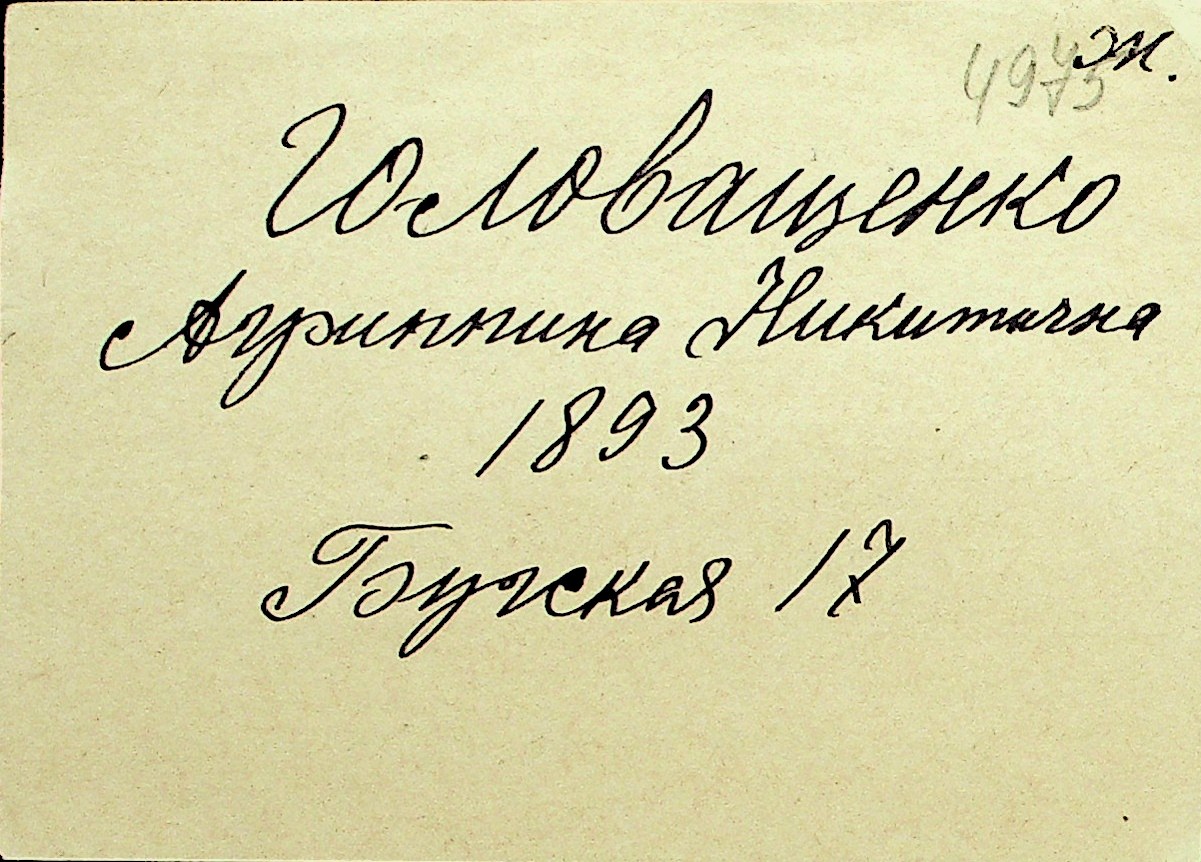 ж.
Головащенко
Агриппина Никитична
1893
Бугская 17